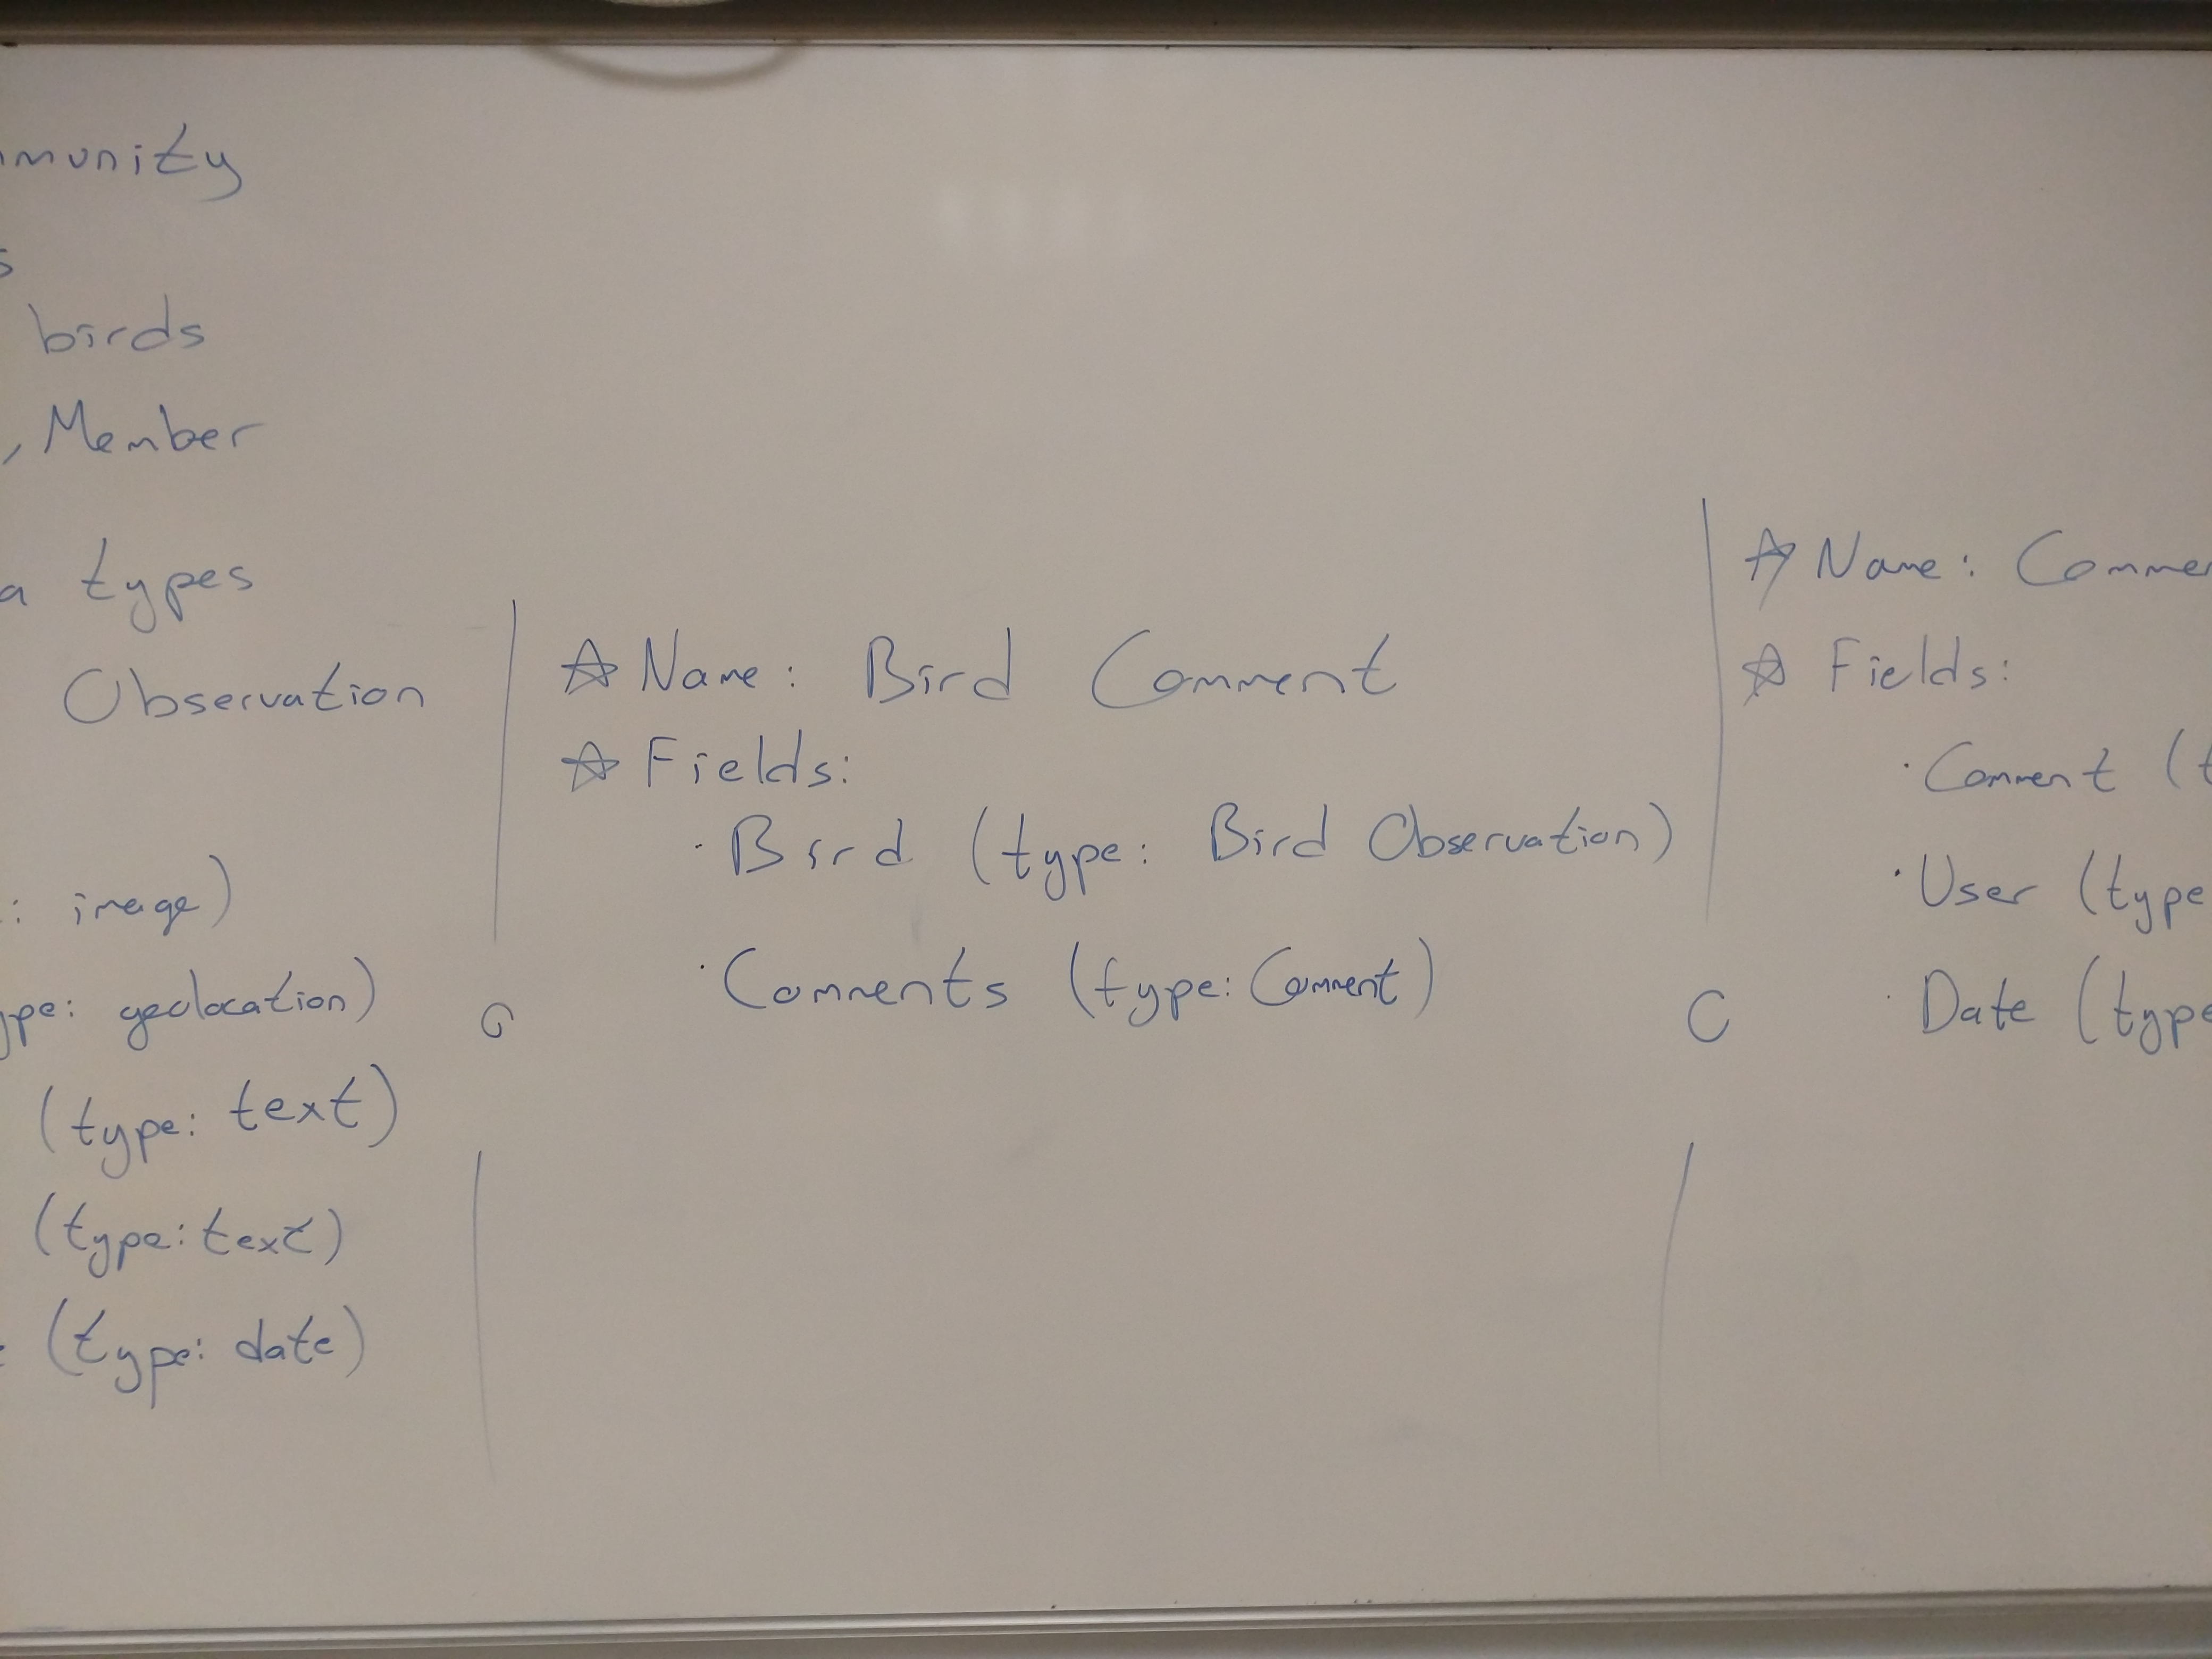 mmunity
s
birds
, Member
a types
Observation
: image)
ype: geolocation)
(type: text)
(type: text)
: (type: date)
☆ Name: Bird Comment
☆ Fields:
· Bird (type: Bird Observation)
· Comments (type: Comment)
☆ Name: Commen
☆ Fields:
· Comment (t
· User (type
· Date (type